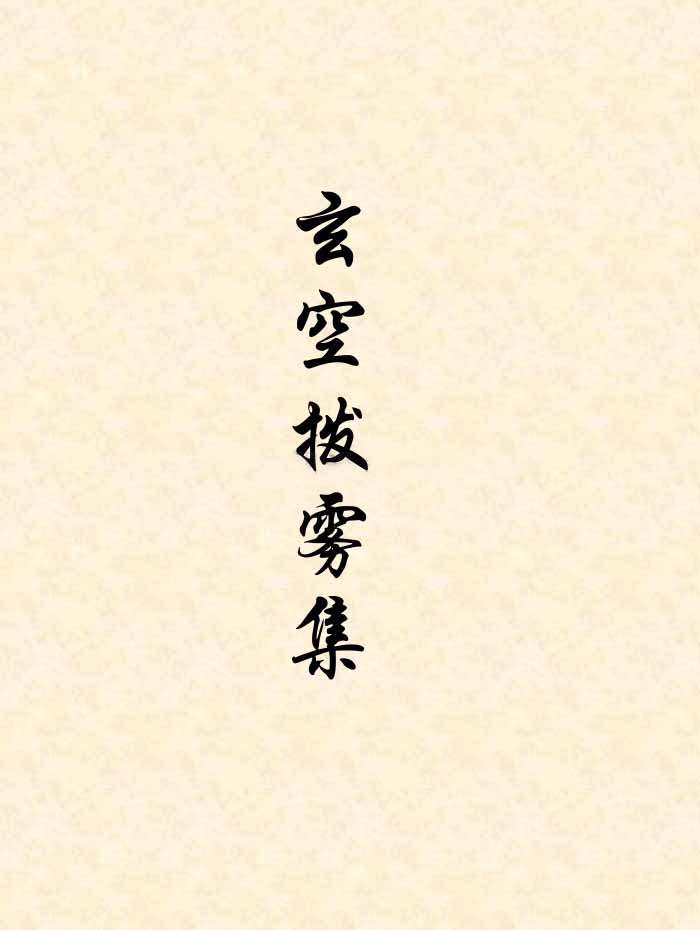 玄空拨雾集